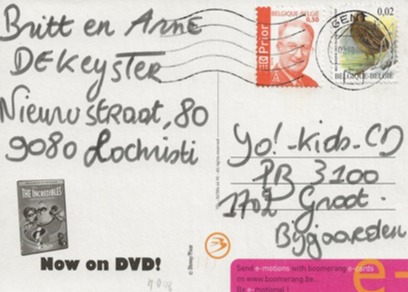 Britt en Arne
DEKeySTER
Nieuwstraat, 80
9080 Lochristi
BELGIQUE-BELGIË
0,50
Prior
GENT
0,02
BELGIE-BELGIQUE
yo! - kids - CD
PB 3100
1702 Groot-
Bijgaarden
THE INCREDIBLES
Now on DVD!
© Disney/Pixar
Send e-motions with boomerang e-cards
on www.boomerang.be
Be e-motional !
e-